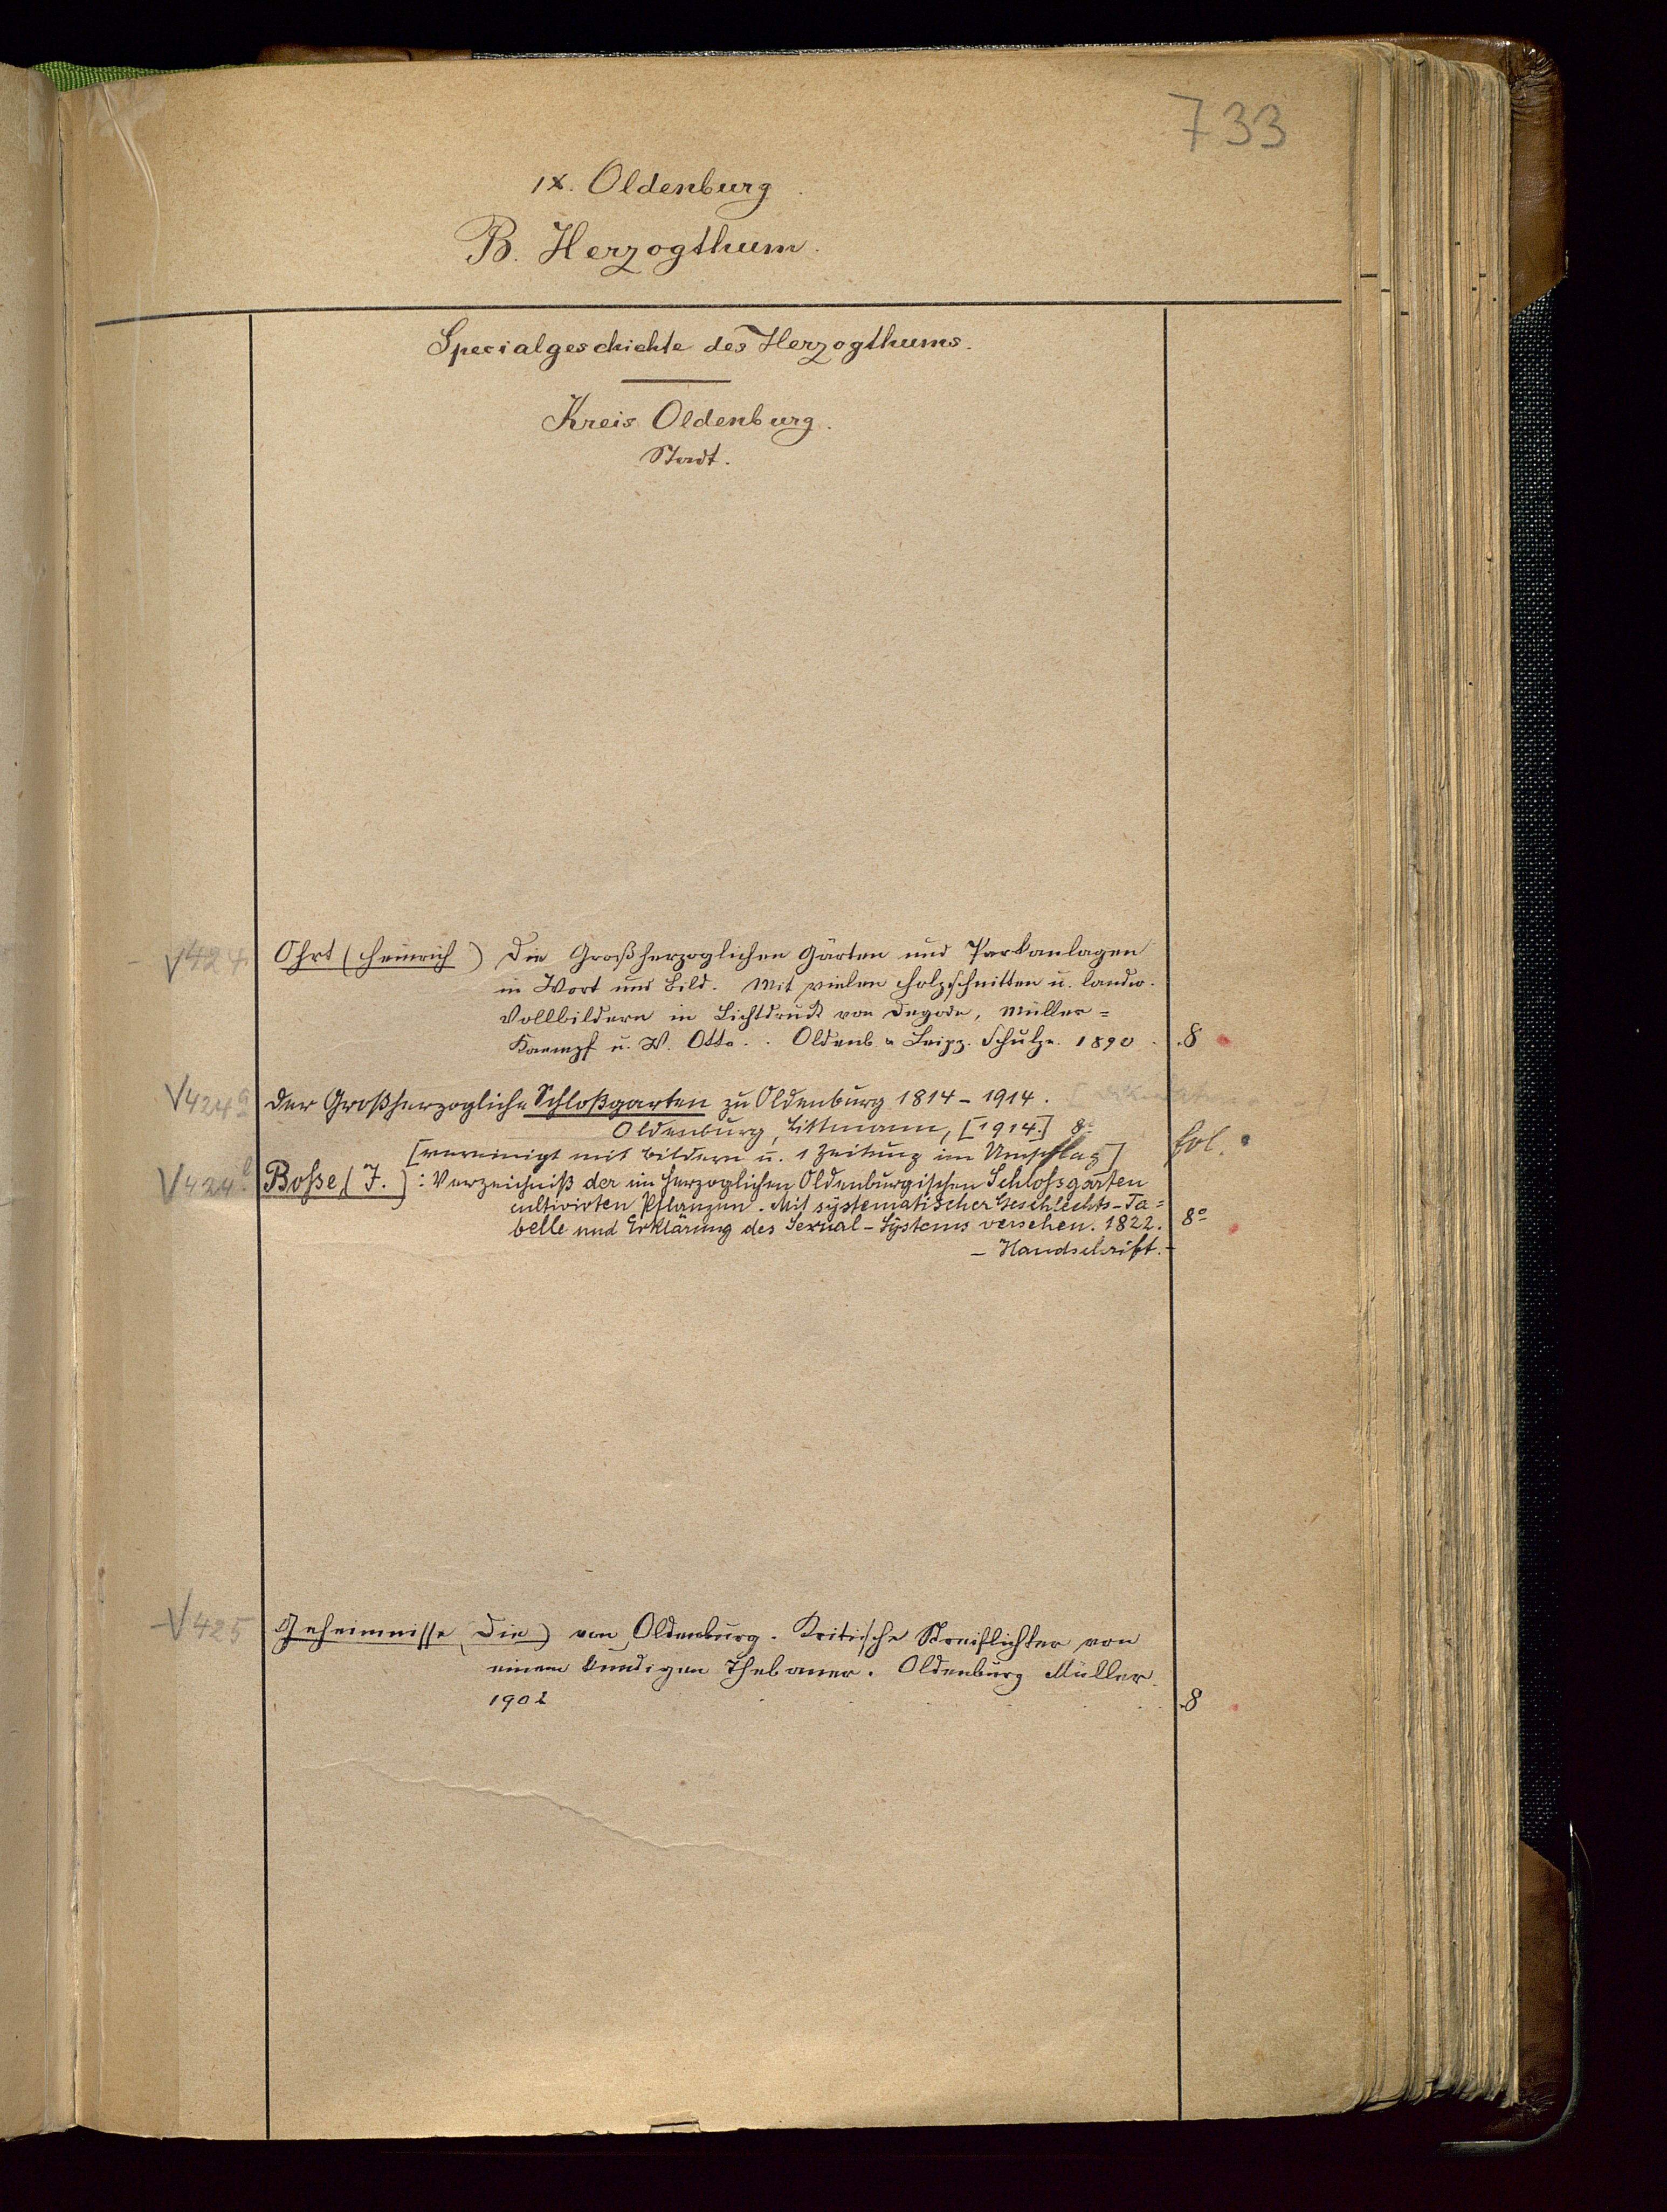 733
IX. Oldenburg
B. Herzogthum.
Specialgeschichte des Herzogthums.
Kreis Oldenburg.
Stadt.
V 424. Ohrt (Heinrich) Die Großherzoglichen Gärten und Parkanlagen
in Wort und Bild. Mit vielen Holzschnitten u. landw.
Vollbildern in Lichtdruck von Degode, Müller=
Kaempf u. W. Otto. . Oldenb. u Leipz. Schulze. 1890 . 8
V 424a Der Großherzogliche Schloßgarten zu Oldenburg 1814 - 1914.
Oldenburg, Littmann, [1914.] 8°
[vereinigt mit Bildern u. 1 Zeitung im Umschlag] fol.
V 424b. Bosse (J.): Verzeichniß der im Herzoglichen Oldenburgischen Schlossgarten
cultivirten Pflanzen. Mit systematischer Geschlechts-Ta=
belle und Erklärung des Sexual-Systems versehen. 1822. 8°
- Handschrift. -
V 425 Geheimnisse (Die) von Oldenburg. Kritische Streiflichter von
einem kundigen Thebaner. Oldenburg Müller.
1902 . 8